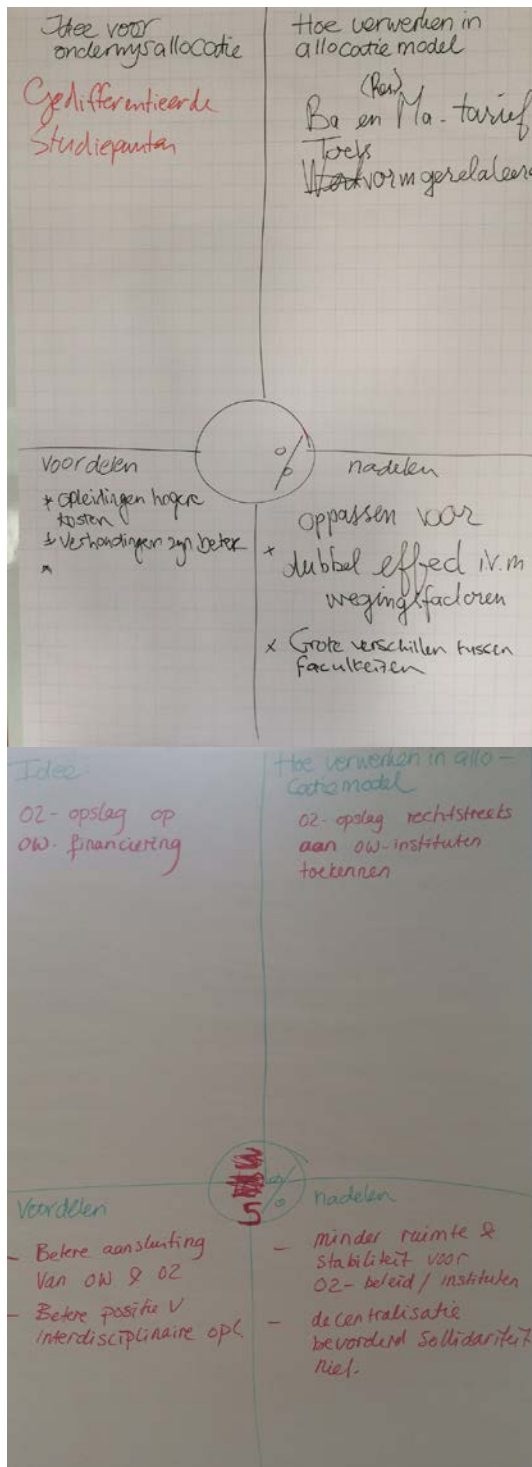 Idee voor
onderwijsallocatie
Gedifferentieerde
Studiepunten
Hoe verwerken in
allocatie model
(Res)
Ba en Ma-tarief
Toets
vormgerelateerd
%
voordelen
* opleidingen hogere
kosten
* verhoudingen zijn beter
*
nadelen
oppassen voor
* dubbel effect i.v.m
wegingsfactoren
x Grote verschillen tussen
faculteiten
Idee
OZ-opslag op
OW-financiering
Hoe verwerken in allo-
catiemodel
OZ-opslag rechtstreets
aan OW-instituten
toekennen
5
%
Voordelen
- Betere aansluiting
van OW & OZ
- Betere positie v
interdisciplinaire opl.
nadelen
- minder ruimte &
stabiliteit voor
OZ-beleid / instituten
- decentralisatie
bevorderd sollidariteit
niet.